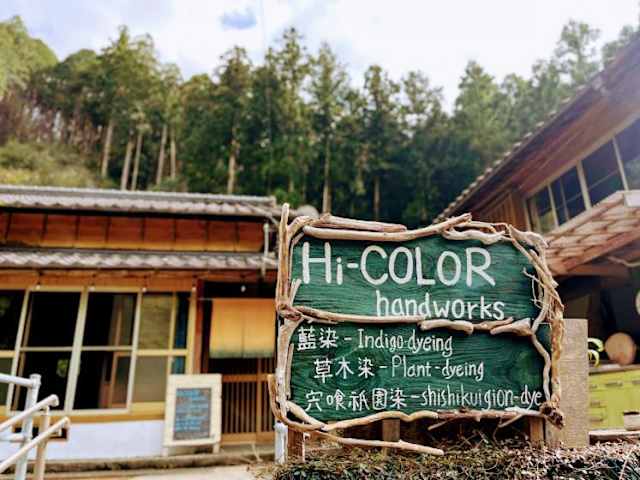 Hi-COLOR
handworks
藍染 - Indigo-dyeing
草木染 - Plant-dyeing
穴喰祇園染 - shishikuigion-dye